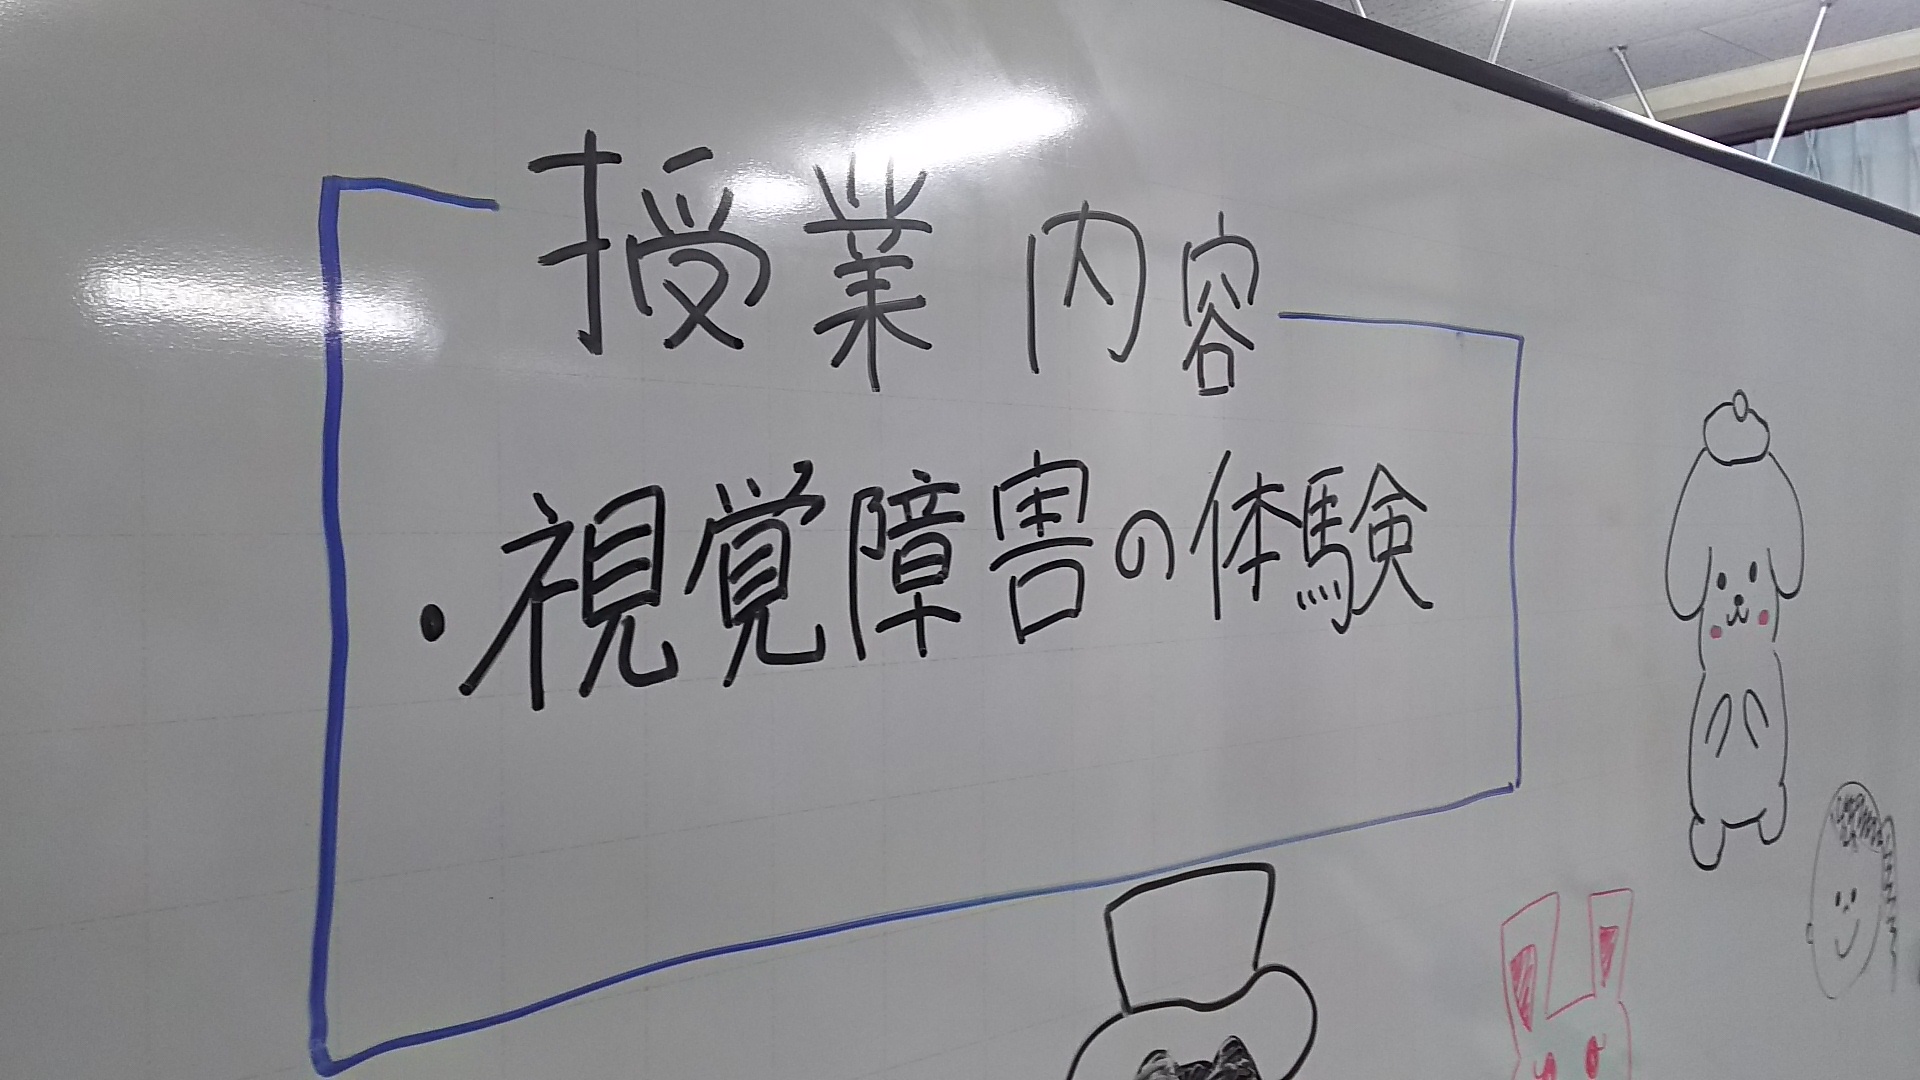 授業内容
・視覚障害の体験